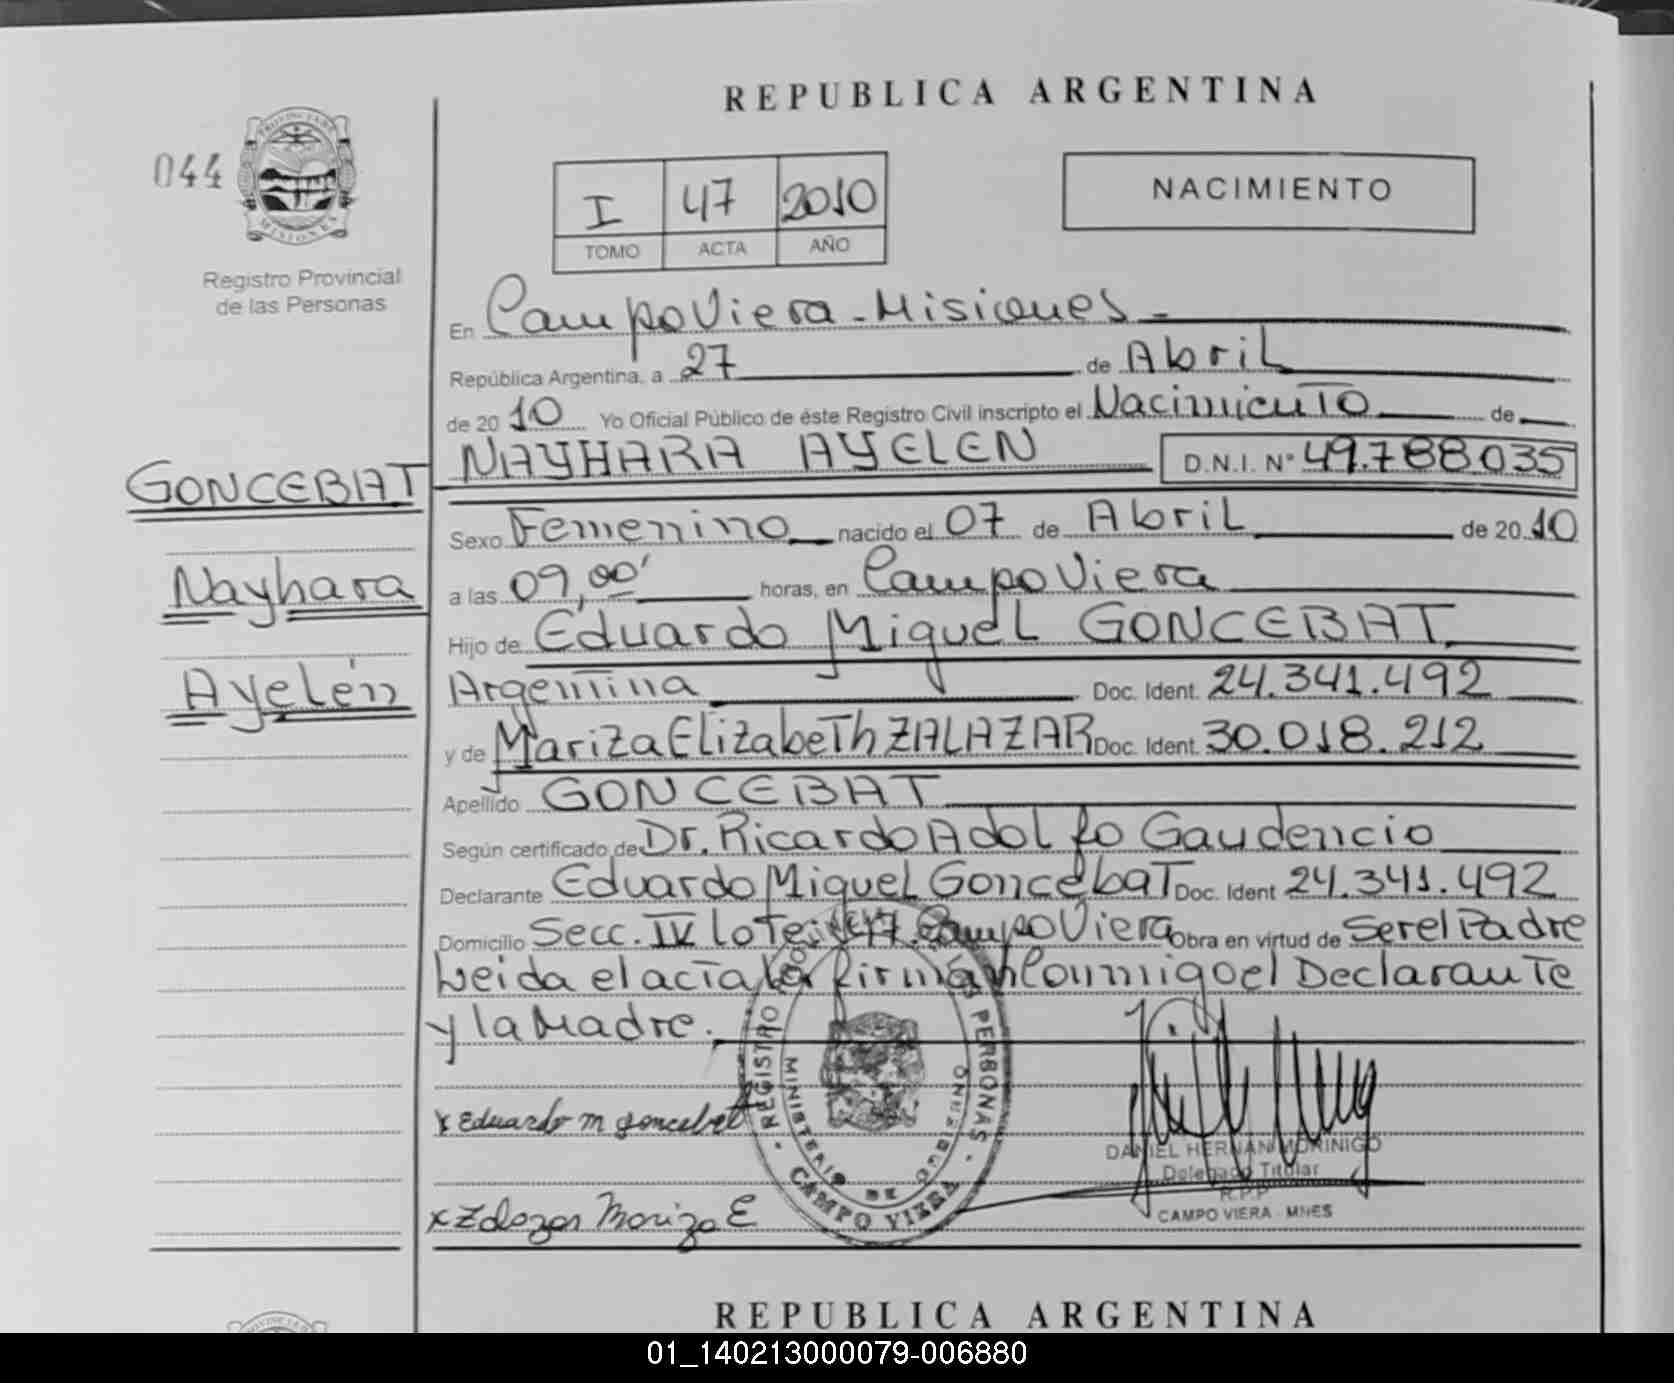 REPUBLICA ARGENTINA
044
PROVINCIA DE
MISIONES
Registro Provincial
de las Personas
I 47 2010
TOMO ACTA AÑO
NACIMIENTO
En Campo Viera - Misiones -
República Argentina, a 27 de Abril
de 2010 Yo Oficial Público de éste Registro Civil inscripto el Nacimiento de
NAYHARA AYELEN D.N.I. N° 49.788.035
GONCEBAT
Nayhara
Ayelén
Sexo Femenino nacido el 07 de Abril de 2010
a las 09,00' horas, en Campo Viera
Hijo de Eduardo Miguel GONCEBAT
Argentina Doc. Ident. 24.341.492
y de Mariza Elizabeth ZALAZAR Doc. Ident. 30.018.212
Apellido GONCEBAT
Según certificado de Dr. Ricardo Adolfo Gaudencio
Declarante Eduardo Miguel Goncebat Doc. Ident 24.341.492
Domicilio Secc. IV lote 47. Campo Viera Obra en virtud de Ser el Padre
Leida el acta la firman Conmigo el Declarante
y la Madre.
REGISTRO PERSONAS
MINISTERIO DE GOBIERNO
CAMPO VIERA
x Eduardo M Goncebat
DANIEL HERNAN MORINIGO
Delegado Titular
R.P.P
CAMPO VIERA - MNES
x Zalazar Mariza E
REPUBLICA ARGENTINA
01_140213000079-006880